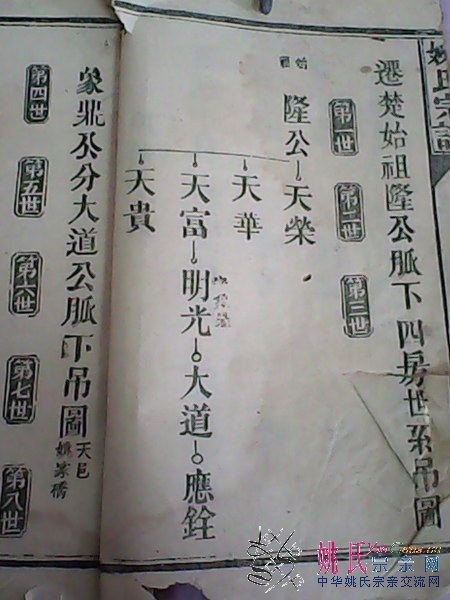 姚氏宗譜
遷楚始祖隆公脈下四房世系吊圖
第一世
第二世
第三世
始祖
隆公
天榮
天華
天富
明光
大道
應銓
天貴
象鼎公分大道公脈下吊圖
天邑
姚家橋
第四世
第五世
第六世
第七世
第八世
姚氏宗亲网
中华姚氏宗亲交流网